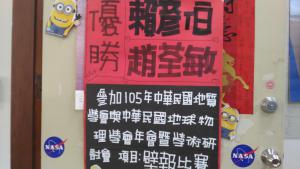 優勝
賴彥君
趙荃敏
參加105年中華民國地質
學會與中華民國地球物
理學會年會暨學術研
討會 項目:壁報比賽
NASA
NASA